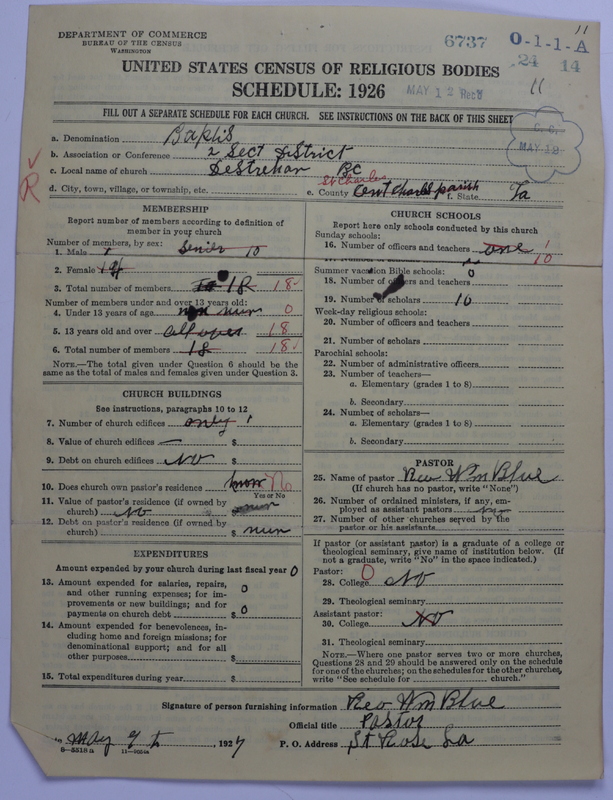 11
DEPARTMENT OF COMMERCE
BUREAU OF THE CENSUS
WASHINGTON
6737 O-1-1-A
24 14
UNITED STATES CENSUS OF RELIGIOUS BODIES
SCHEDULE: 1926
MAY 12 Rec'd
11
FILL OUT A SEPARATE SCHEDULE FOR EACH CHURCH. SEE INSTRUCTIONS ON THE BACK OF THIS SHEET
a. Denomination Baptis
b. Association or Conference 2 Sect District
c. Local name of church DeStrehan BC
MAY 12
R
d. City, town, village, or township, etc.
e. County St Charles parish f. State La
MEMBERSHIP
Report number of members according to definition of member in your church
Number of members, by sex:
1. Male Senier 10
2. Female
3. Total number of members 18 18
Number of members under and over 13 years old:
4. Under 13 years of age nun 0
5. 13 years old and over all over 18
6. Total number of members 18 18
NOTE.—The total given under Question 6 should be the same as the total of males and females given under Question 3.
CHURCH BUILDINGS
See instructions, paragraphs 10 to 12
7. Number of church edifices only 1
8. Value of church edifices $
9. Debt on church edifices NO $
10. Does church own pastor's residence No
Yes or No
11. Value of pastor's residence (if owned by church) No $
12. Debt on pastor's residence (if owned by church) $ nun
EXPENDITURES
Amount expended by your church during last fiscal year 0
13. Amount expended for salaries, repairs, and other running expenses; for improvements or new buildings; and for payments on church debt $ 0
0
14. Amount expended for benevolences, including home and foreign missions; for denominational support; and for all other purposes $
15. Total expenditures during year $
CHURCH SCHOOLS
Report here only schools conducted by this church
Sunday schools:
16. Number of officers and teachers one 1
10
Summer vacation Bible schools: 0
18. Number of officers and teachers
19. Number of scholars 10
Week-day religious schools:
20. Number of officers and teachers
21. Number of scholars
Parochial schools:
22. Number of administrative officers
23. Number of teachers—
a. Elementary (grades 1 to 8)
b. Secondary
24. Number of scholars—
a. Elementary (grades 1 to 8)
b. Secondary
PASTOR
25. Name of pastor Rev Wm Blue
(If church has no pastor, write "None")
26. Number of ordained ministers, if any, employed as assistant pastors
27. Number of other churches served by the pastor or his assistants
If pastor (or assistant pastor) is a graduate of a college or theological seminary, give name of institution below. (If not a graduate, write "No" in the space indicated.)
Pastor: 0
28. College NO
29. Theological seminary
Assistant pastor:
30. College NO
31. Theological seminary
NOTE.—Where one pastor serves two or more churches, Questions 28 and 29 should be answered only on the schedule for one of the churches; on the schedules for the other churches, write "See schedule for church."
Signature of person furnishing information Rev Wm Blue
Official title Pastor
May 9 th, 1927 P. O. Address St Rose La
8—5518a